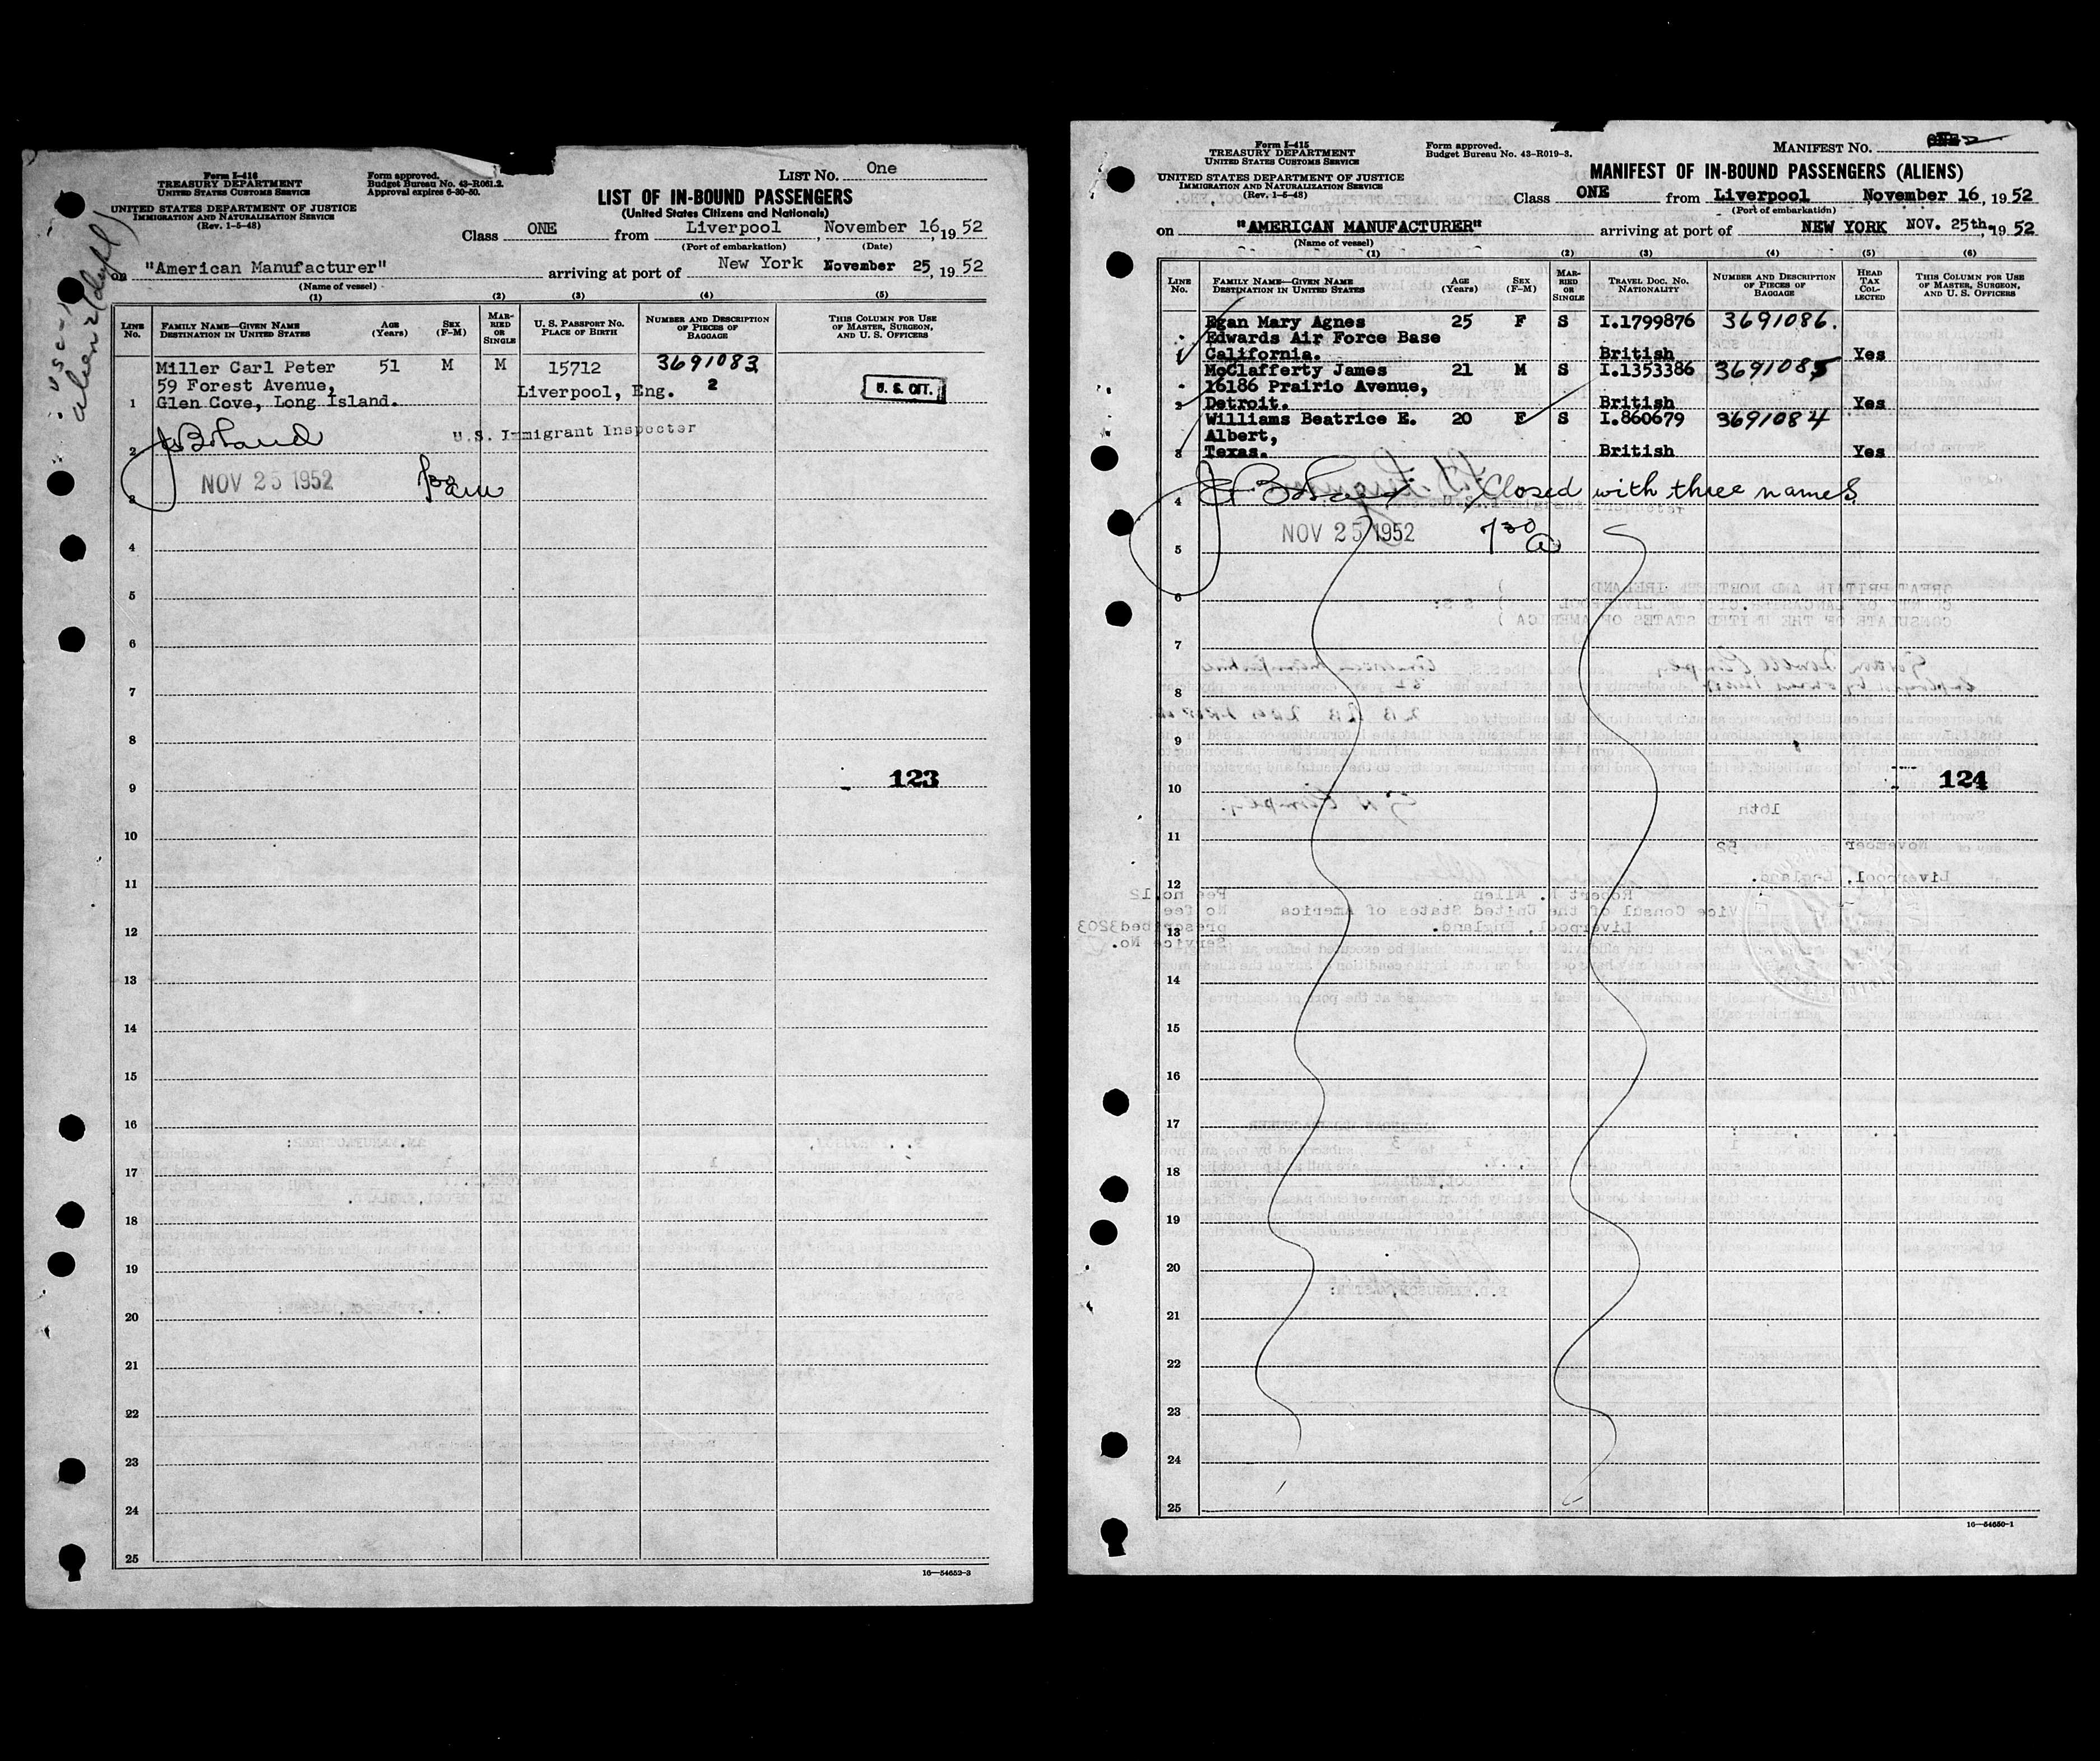 Form I-416
TREASURY DEPARTMENT
UNITED STATES CUSTOMS SERVICE
UNITED STATES DEPARTMENT OF JUSTICE
IMMIGRATION AND NATURALIZATION SERVICE
(Rev. 1-5-48)
Form approved.
Budget Bureau No. 43-R061.2.
Approval expires 6-30-50.
LIST NO. One
LIST OF IN-BOUND PASSENGERS
(United States Citizens and Nationals)
Class ONE from Liverpool, November 16, 1952
(Port of embarkation) (Date)
on "American Manufacturer" arriving at port of New York November 25, 1952
(Name of vessel)
(1) (2) (3) (4) (5)
LINE NO.
FAMILY NAME—GIVEN NAME
DESTINATION IN UNITED STATES
AGE (Years)
SEX (F-M)
MARRIED OR SINGLE
U. S. PASSPORT NO.
PLACE OF BIRTH
NUMBER AND DESCRIPTION OF PIECES OF BAGGAGE
THIS COLUMN FOR USE OF MASTER, SURGEON, AND U. S. OFFICERS
Miller Carl Peter 51 M M 15712 3691083
59 Forest Avenue, Liverpool, Eng. 2 U. S. CIT.
1 Glen Cove, Long Island.
2 U.S. Immigrant Inspector
3 NOV 25 1952
4
5
6
7
8
9 123
10
11
12
13
14
15
16
17
18
19
20
21
22
23
24
25
16—54652-3
Form I-415
TREASURY DEPARTMENT
UNITED STATES CUSTOMS SERVICE
UNITED STATES DEPARTMENT OF JUSTICE
IMMIGRATION AND NATURALIZATION SERVICE
(Rev. 1-5-48)
Form approved.
Budget Bureau No. 43-R019-3.
MANIFEST NO.
MANIFEST OF IN-BOUND PASSENGERS (ALIENS)
Class ONE from Liverpool November 16, 1952
(Port of embarkation)
on "AMERICAN MANUFACTURER" arriving at port of NEW YORK NOV. 25th, 1952
(Name of vessel)
(1) (2) (3) (4) (5) (6)
LINE NO.
FAMILY NAME—GIVEN NAME
DESTINATION IN UNITED STATES
AGE (Years)
SEX (F-M)
MARRIED OR SINGLE
TRAVEL DOC. NO.
NATIONALITY
NUMBER AND DESCRIPTION OF PIECES OF BAGGAGE
HEAD TAX COLLECTED
THIS COLUMN FOR USE OF MASTER, SURGEON, AND U. S. OFFICERS
Egan Mary Agnes 25 F S I.1799876 3691086.
Edwards Air Force Base
1 California. British Yes
McClafferty James 21 M S I.1353386 3691085
16186 Prairio Avenue,
2 Detroit. British Yes
Williams Beatrice E. 20 F S I.860679 3691084
Albert,
3 Texas. British Yes
4 Closed with three names
U.S. Immigrant Inspector
5 NOV 25 1952 7 30 a
6
7
8
9
10 124
11
12
13
14
15
16
17
18
19
20
21
22
23
24
25
16—54650-1